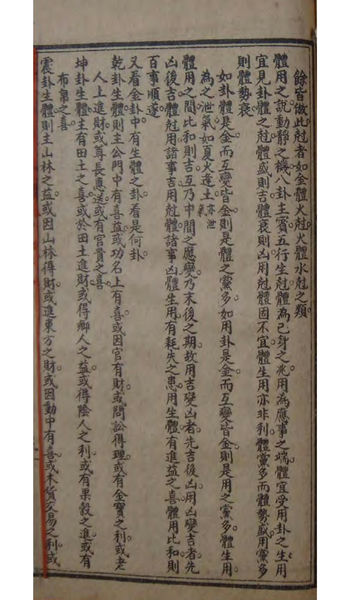 餘皆倣此尅者如金體火尅火體水尅之類
體用之說動靜之機八卦主賓五行生尅體為己身之兆用為應事之端體宜受用卦之生用
宜見卦體之尅體盛則吉體衰則凶用尅體固不宜體生用亦非利體黨多而體勢盛用黨多
則體勢衰
如卦體是金而互變皆金則是體之黨多如用卦是金而互變皆金則是用之黨多體生用
為之泄氣如夏火逢土亦泄氣
體用之間比和則吉互乃中間之應變乃末後之期故用吉變凶者先吉後凶用凶變吉者先
凶後吉體尅用諸事吉用尅體諸事凶體生用有耗失之患用生體有進益之喜體用比和則
百事順遂
又看全卦中有生體之卦看是何卦
乾卦生體則主公門中有喜益或功名上有喜或因官有財或問訟得理或有金寶之利或老
人上進財或尊長惠送或有官貴之喜
坤卦生體主有田土之喜或於田土進財或得鄉人之益或得陰人之利或有果穀之進或有
布帛之喜
震卦生體則主山林之益或因山林得財或進東方之財或因動中有喜或木貨交易之利或